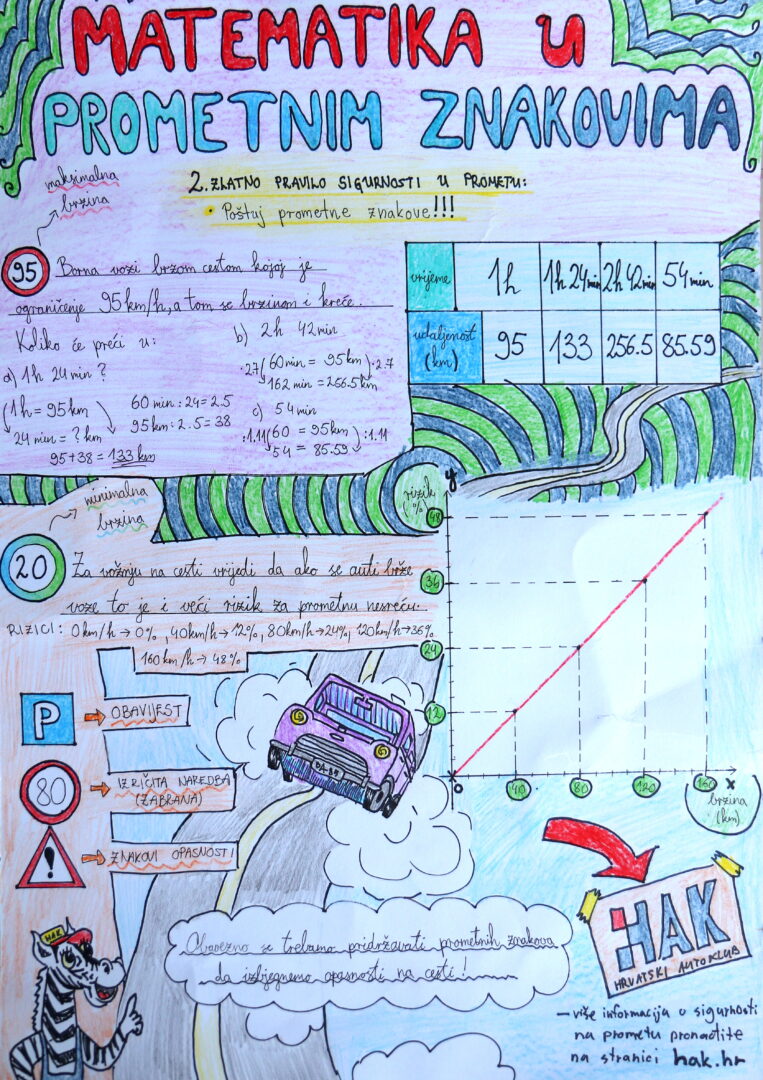 MATEMATIKA U
PROMETNIM ZNAKOVIMA
maksimalna
brzina
2. ZLATNO PRAVILO SIGURNOSTI U PROMETU:
• Poštuj prometne znakove!!!
95 Borna vozi brzom cestom kojoj je
ograničenje 95 km/h, a tom se brzinom i kreće.
Koliko će preći u:
a) 1h 24 min ?
1h = 95 km
24 min = ? km
95+38 = 133 km
60 min : 24 = 2.5
95 km : 2.5 = 38
b) 2h 42 min
·2.7 (60 min = 95 km) ·2.7
162 min = 256.5 km
c) 54 min
:1.11 (60 = 95 km) :1.11
54 = 85.59
vrijeme 1h 1h 24 min 2h 42 min 54 min
udaljenost (km) 95 133 256.5 85.59
minimalna
brzina
20 Za vožnju na cesti vrijedi da ako se auti brže
voze to je i veći rizik za prometnu nesreću.
RIZICI: 0 km/h → 0%, 40 km/h → 12%, 80 km/h → 24%, 120 km/h → 36%
160 km/h → 48%
y
rizik
(%)
48
36
24
12
0 40 80 120 160 x
brzina
(km)
P OBAVIJEST
80 IZRIČITA NAREDBA
(ZABRANA)
! ZNAKOVI OPASNOSTI
HAK
Obavezno se trebamo pridržavati prometnih znakova
da izbjegnemo opasnosti na cesti!
HAK
HRVATSKI AUTOKLUB
– više informacija o sigurnosti
na prometu pronađite
na stranici hak.hr